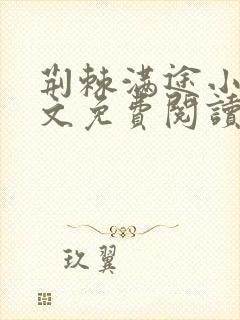 荆棘满途小
文免費閱讀
玖翼